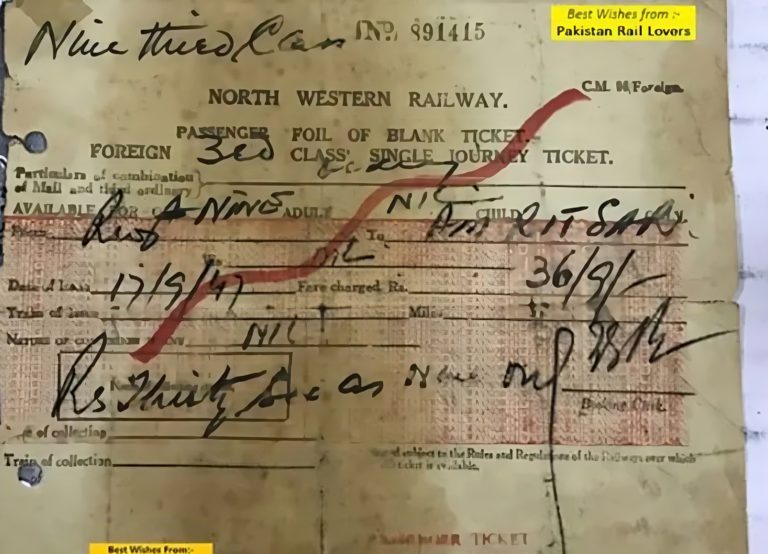 Best Wishes from :-
Pakistan Rail Lovers
Nine third Class
No. 891415
C.M. 94/Foreign.
NORTH WESTERN RAILWAY.
PASSENGER FOIL OF BLANK TICKET.
FOREIGN 3rd CLASS SINGLE JOURNEY TICKET.
Particulars of combination
of Mail and third ordinary
AVAILABLE FOR NINE ADULT NIL CHILD
From To AMRITSAR
Rs. NIL
Date of Issue 17/9/47 Fare charged Rs. 36/9/-
Train of Issue Miles
NATURE OF NIL
Rs Thirty Six as Nine only
Booking Clerk.
e of collection
Train of collection
subject to the Rules and Regulations of the Railways over which
ticket is available.
PASSENGER TICKET
Best Wishes From:-